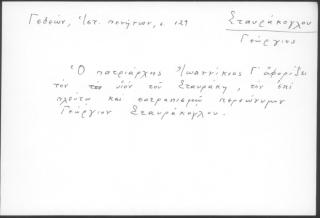 Γεδεών, Ἱστ. πενήτων, σ. 129
Σταυράκογλου
Γεώργιος
Ὁ πατριάρχης Ἰωαννίκιος Γ΄ ἀφορίζει
τὸν υἱὸν τοῦ Σταυράκη, τὸν ἐπὶ
πλούτῳ καὶ σατραπισμῷ περιώνυμον
Γεώργιον Σταυράκογλου.